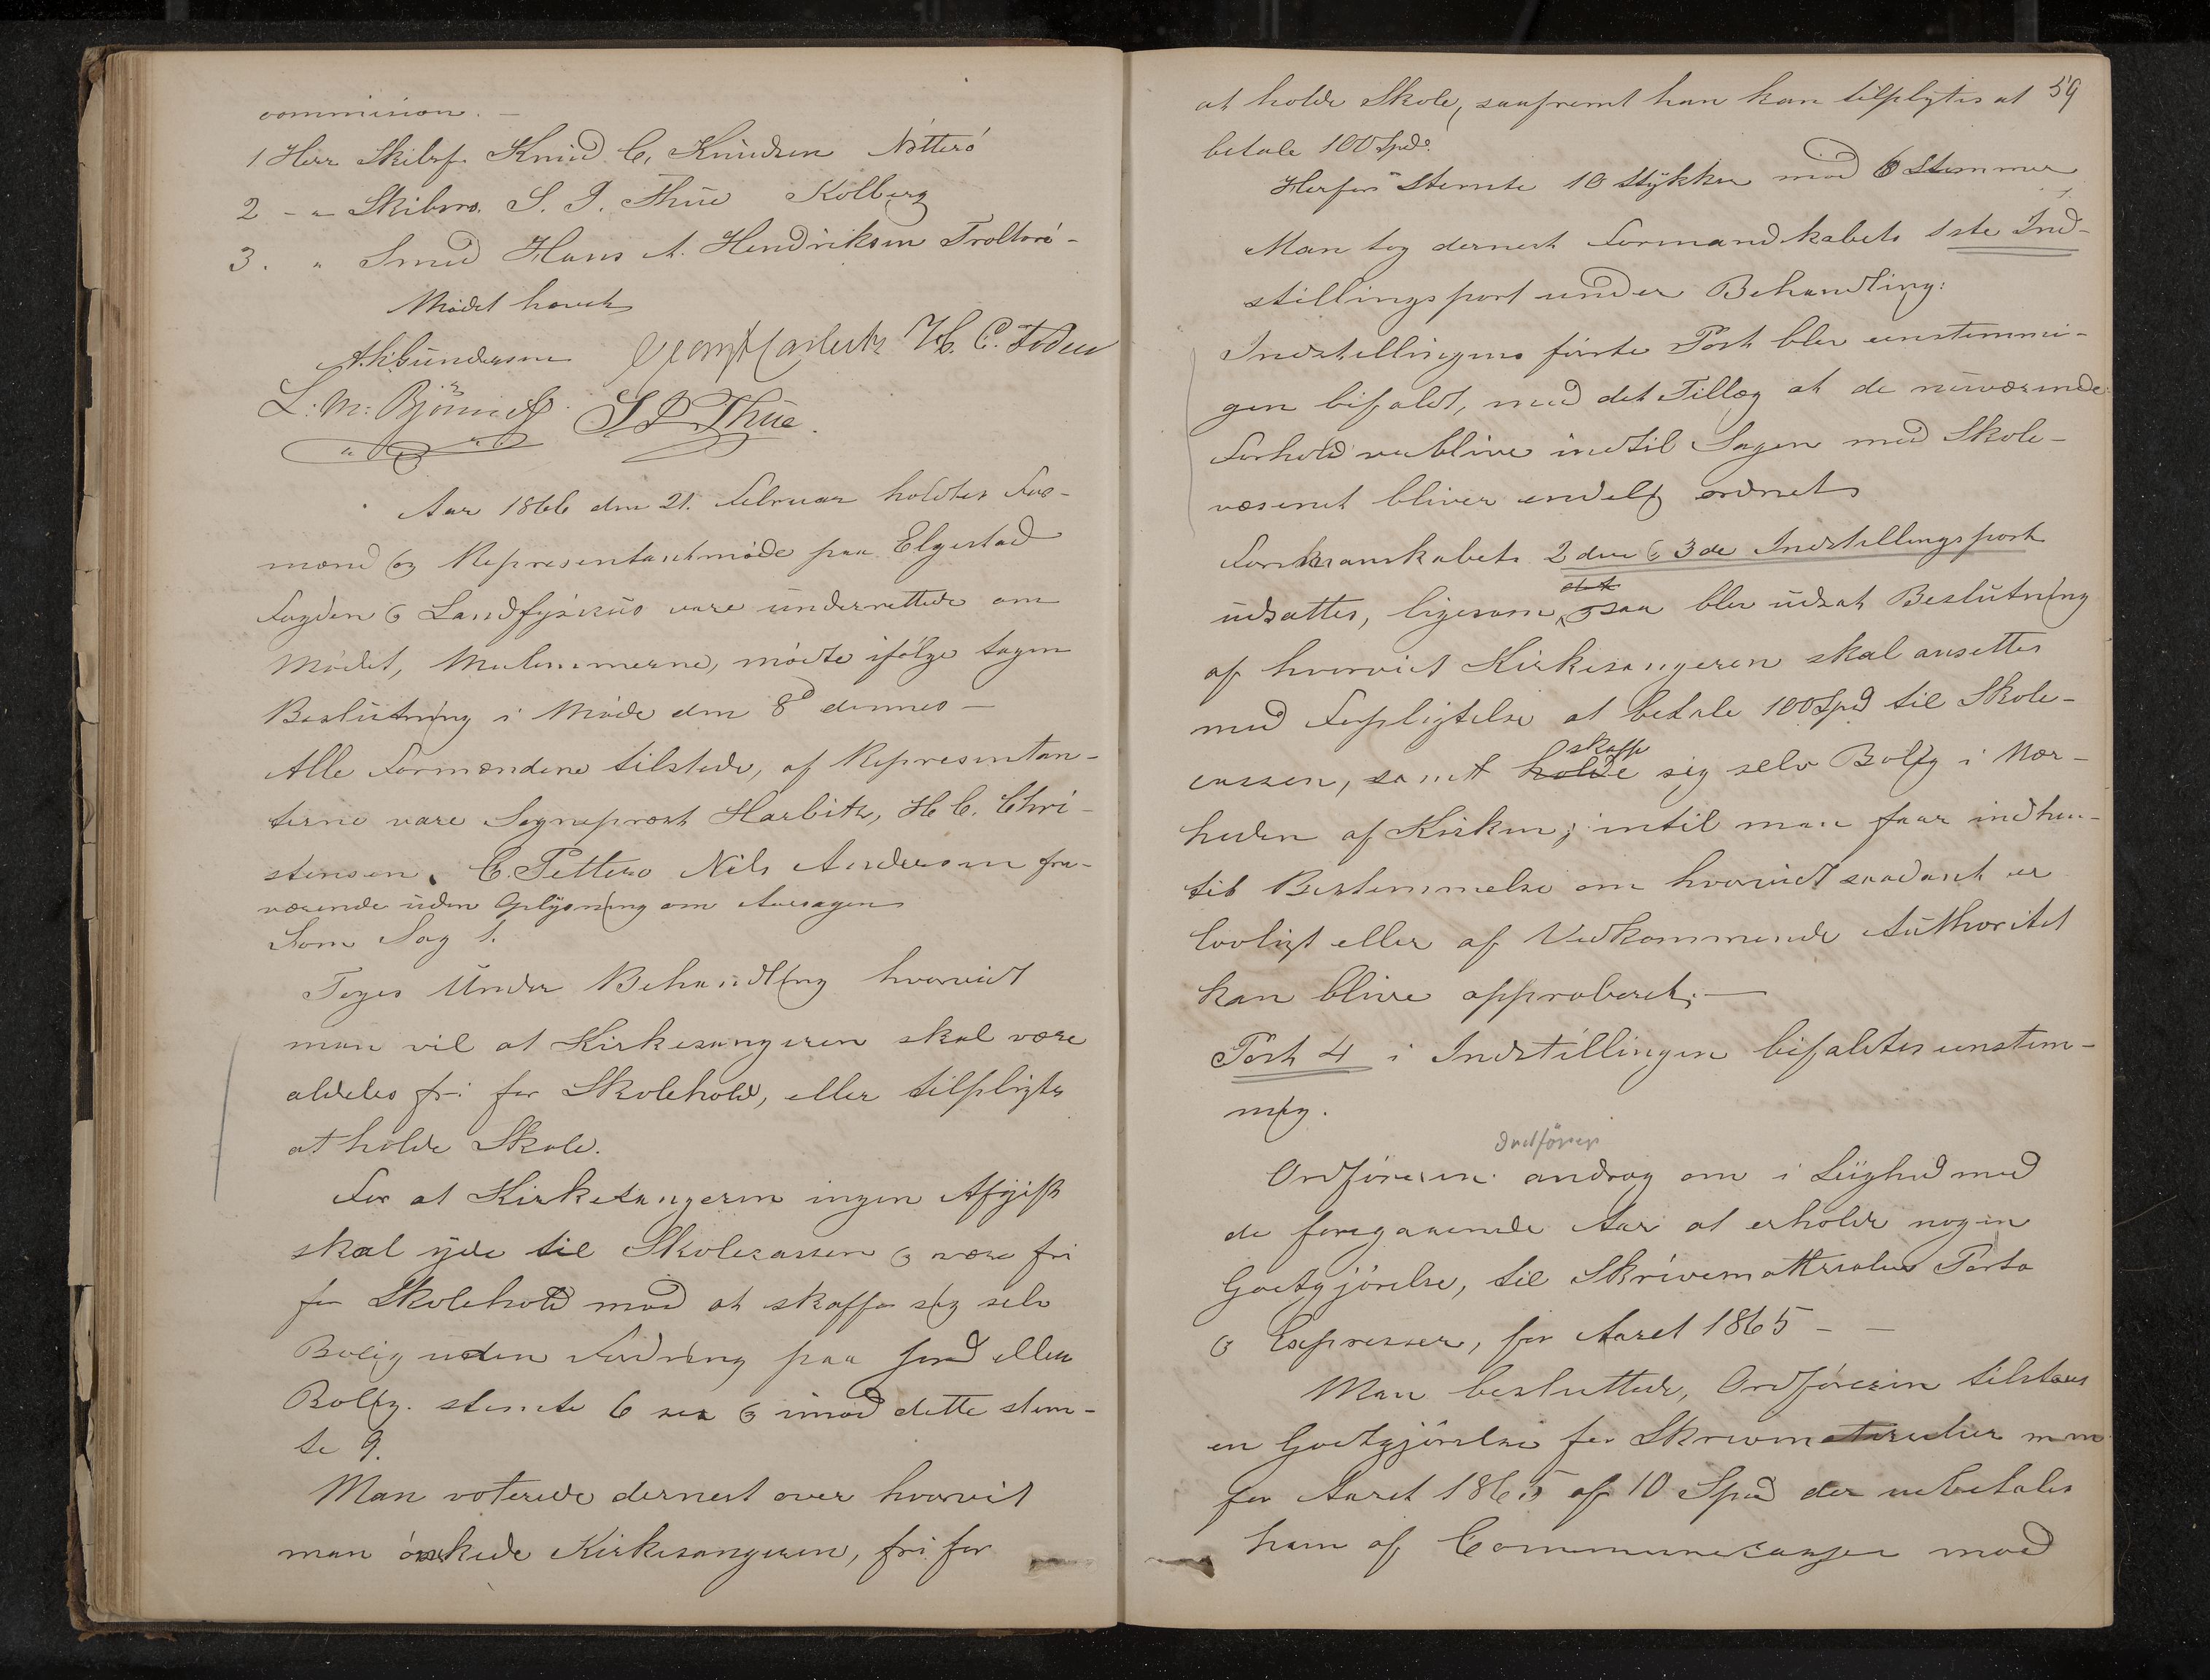 commision. —
1 Herr Skibsf. Knud C. Knudsen Nötterö
2 - " Skibsm. S. P. Thue Kolberg
3. " Smed Hans A. Hendriksen
Mödet hævet
A. K. Gundersen Harbitz H. C. Foden
L. M. Bjönnes S P Thue.
Aar 1866 den 21. Februar holdtes For-
mænd og Representantmöde paa Elgestad
Fogden & Landfysikus vare underrettede om
Mödet, Medlemmerne, mödte ifölge tagen
Beslutning i Möde den 8d dennes —
Alle Formændene tilstede, af Representan-
terne vare Sogneprest Harbitz, H C. Chri-
stensen, C. Petters Nils Andersen fra-
værende uden Oplysning om Aarsagen
Som Sag 1.
Toges Under Behandling hvorvidt
man vil at Kirkesangeren skal være
aldeles fri for Skolehold, eller tilpligtes
at holde Skole.
For at Kirkesangeren ingen Afgift
skal yde til Skolecassen & være fri
for Skolehold mod at skaffe sig selv
Bolig uden Fordring paa Jord eller
Bolig. stemte 6 & imod dette stem-
te 9.
Man voterede dernest over hvorvidt
man önskede Kirkesangeren, fri for
59
at holde Skole, saafremt han kan tilpligtes at
betale 100 Spd.
Herfor stemte 10 stykker mod 6 Stemmer
Man tog dernest Formandskabets 1ste Ind-
stillingspost under Behandling:
Indstillingens förste Post blev eenstemmi-
gen bifaldt, med det Tillæg at de nuværende
Forhold vedblive indtil Sagen med Skole-
væsenet bliver endelig ordnet
Formanskabets 2den & 3de Indstillingspost
udsattes, ligesom ogsaa blev udsat Beslutning
af hvorvidt Kirkesangeren skal ansettes
med Forpligtelse at betale 100 Spd til Skole-
cassen, samt holde skaffe sig selv Bolig i Nær-
heden af Kirken; intil man faar indhen-
tet Bestemmelse om hvorvidt saadant er
lovligt eller af Vedkommende Authoritet
kan blive approberet. —
Post 4 i Indstillingen bifaldtes eenstem-
mig.
Ordförer
Ordföreren androg om i Liighed med
de foregaaende Aar at erholde nogen
Godtgjörelse, til Skrivematterialer Porto
& Expresser, for Aaret 1865 — —
Man besluttede, Ordföreren tilstaaes
en Godtgjörelse for Skrivematerialier m m
for Aaret 1865 af 10 Spd der udbetales
ham af Communecassen mod